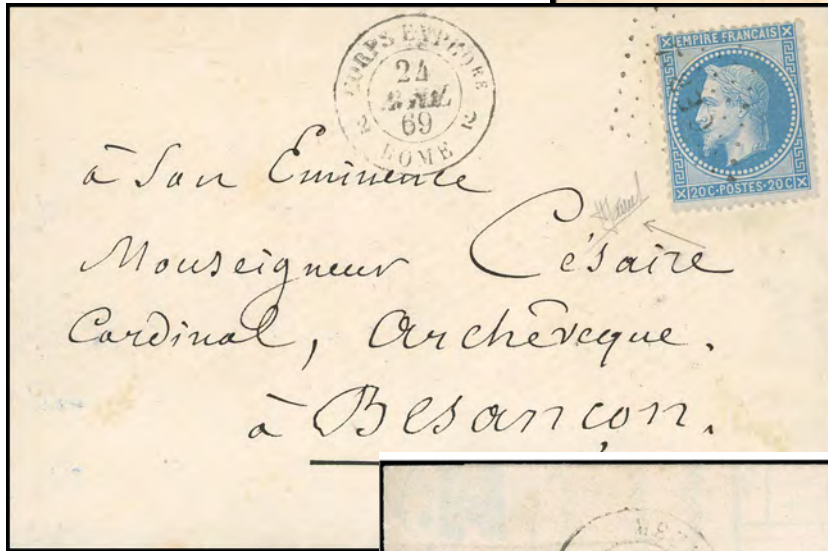 CORPS EXPEDRE
24
AVRIL
69
2 2
ROME
EMPIRE FRANCAIS
20C·POSTES·20C
à Son Eminence
Monseigneur Césaire
Cardinal, Archevêque.
à Besançon.